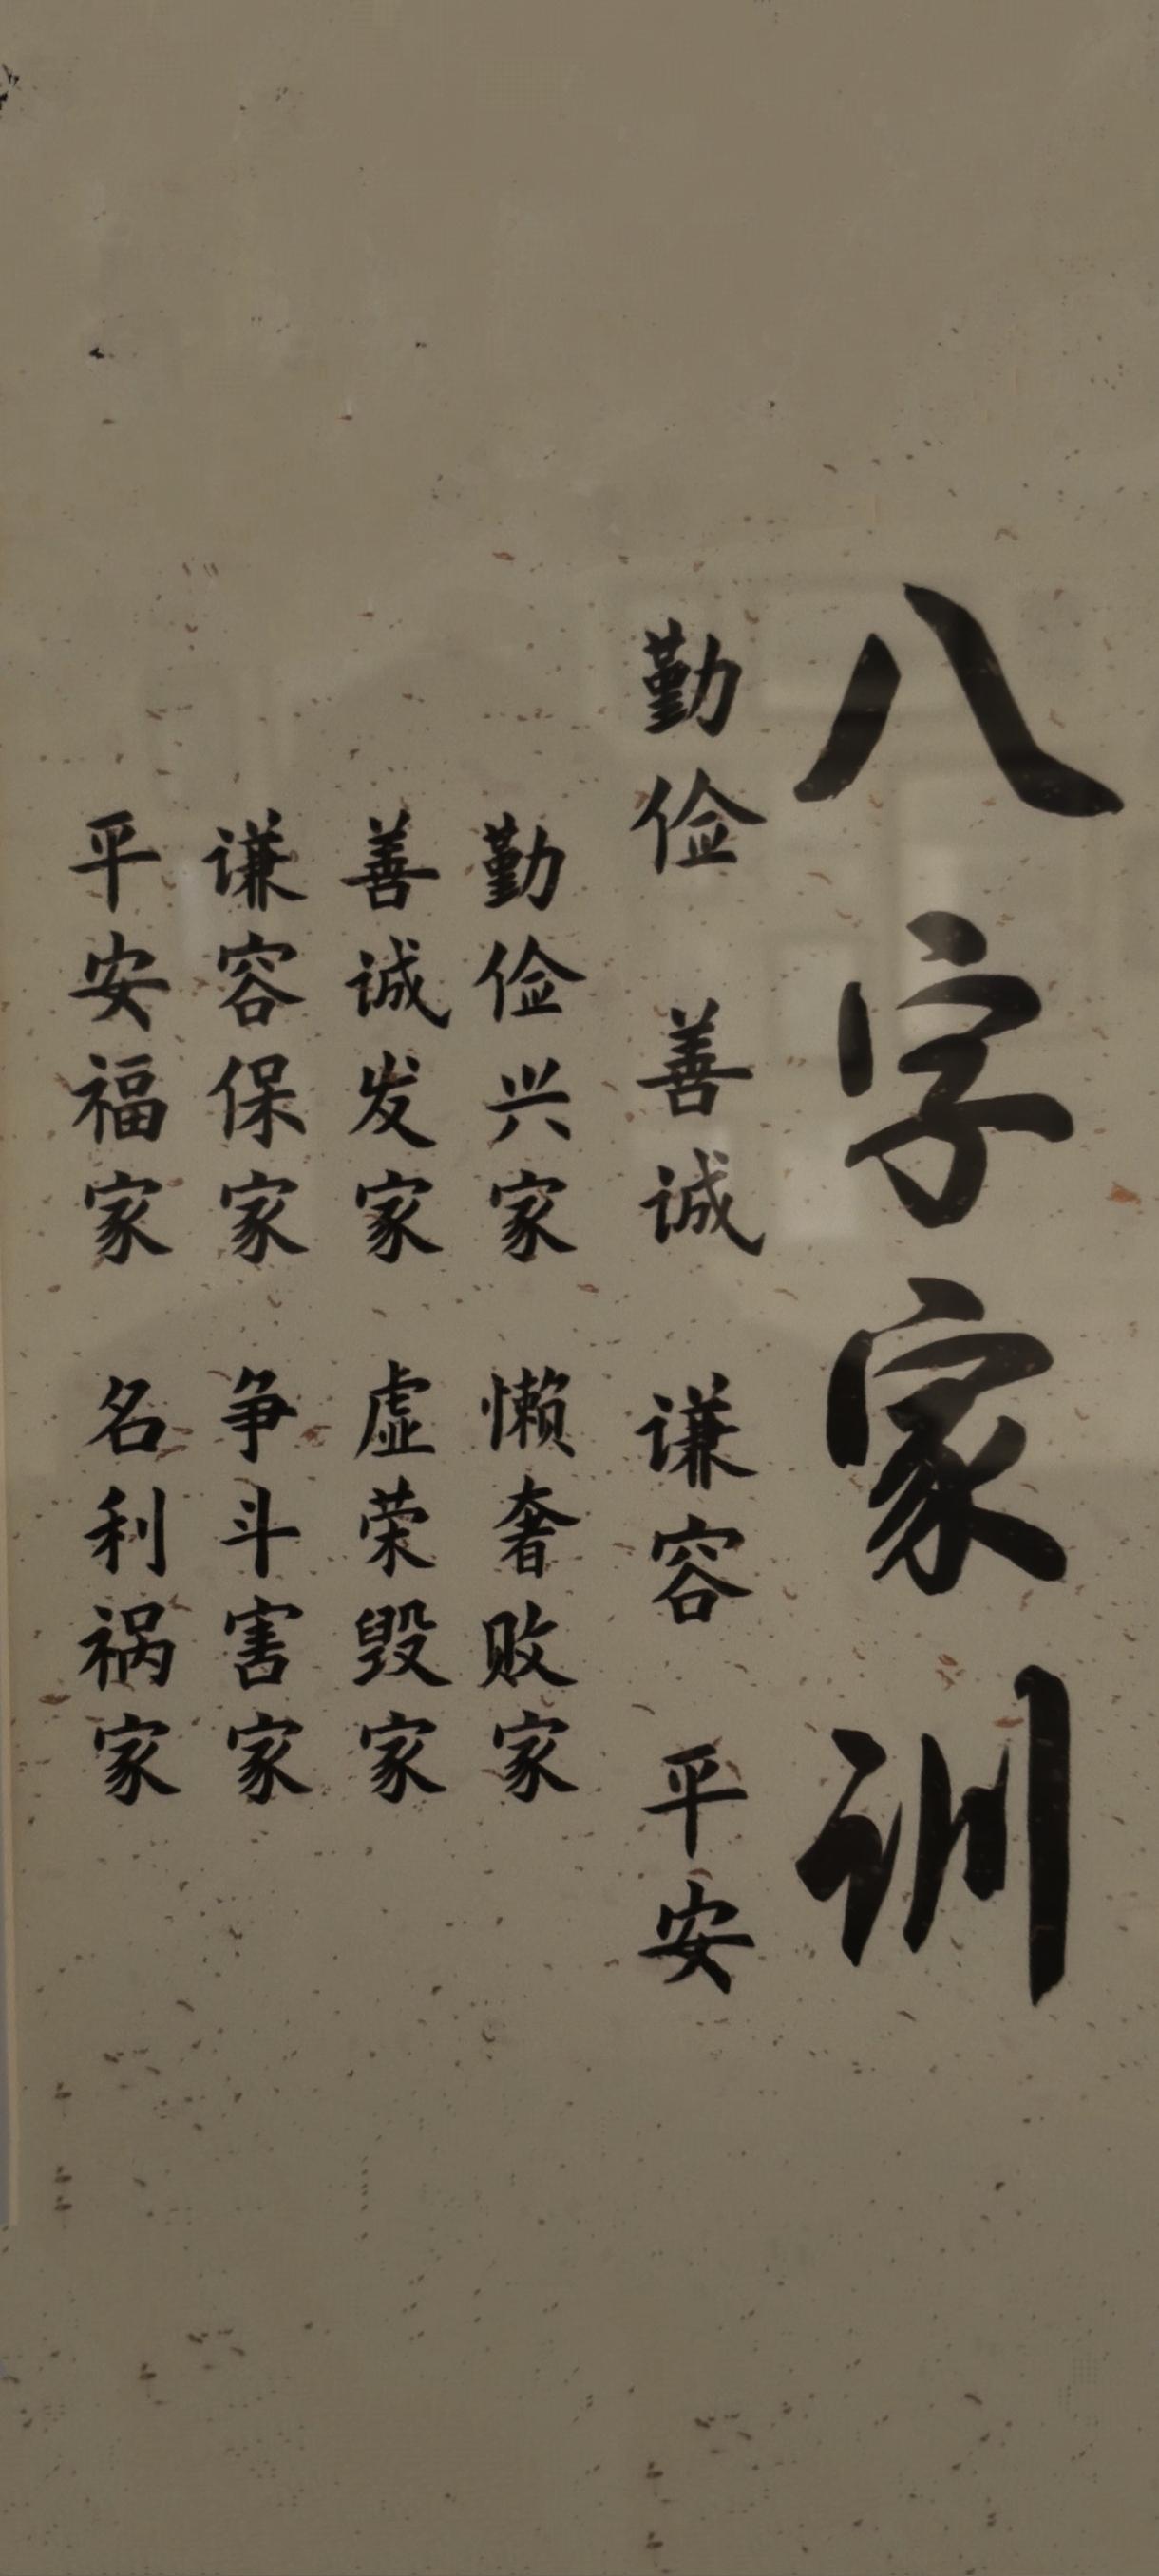 八字家训
勤俭 善诚 谦容 平安
勤俭兴家 懒奢败家
善诚发家 虚荣毁家
谦容保家 争斗害家
平安福家 名利祸家